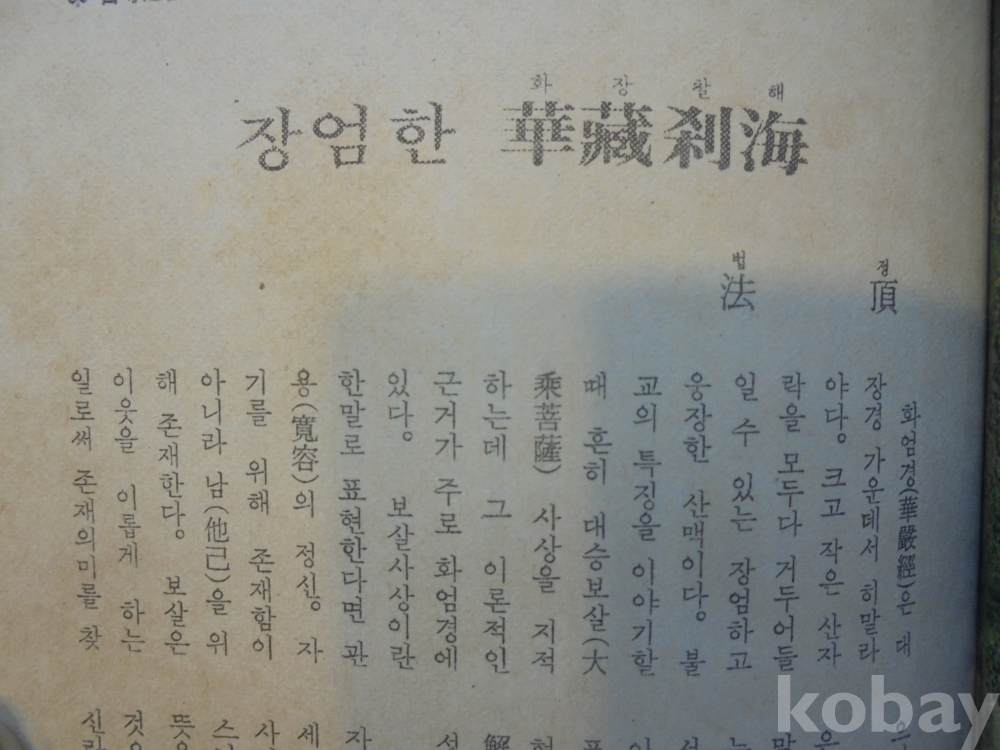 장엄한 華藏刹海
화 장 찰 해
法頂
법 정
화엄경(華嚴經)은 대
장경 가운데서 히말라
야다. 크고 작은 산자
락을 모두다 거두어들
일 수 있는 장엄하고
웅장한 산맥이다. 불
교의 특징을 이야기할
때 흔히 대승보살(大
乘菩薩) 사상을 지적
하는데 그 이론적인
근거가 주로 화엄경에
있다. 보살사상이란
한말로 표현한다면 관
용(寬容)의 정신, 자
기를 위해 존재함이
아니라 남(他己)을 위
해 존재한다. 보살은
이웃을 이롭게 하는
일로써 존재의미를 찾
kobay